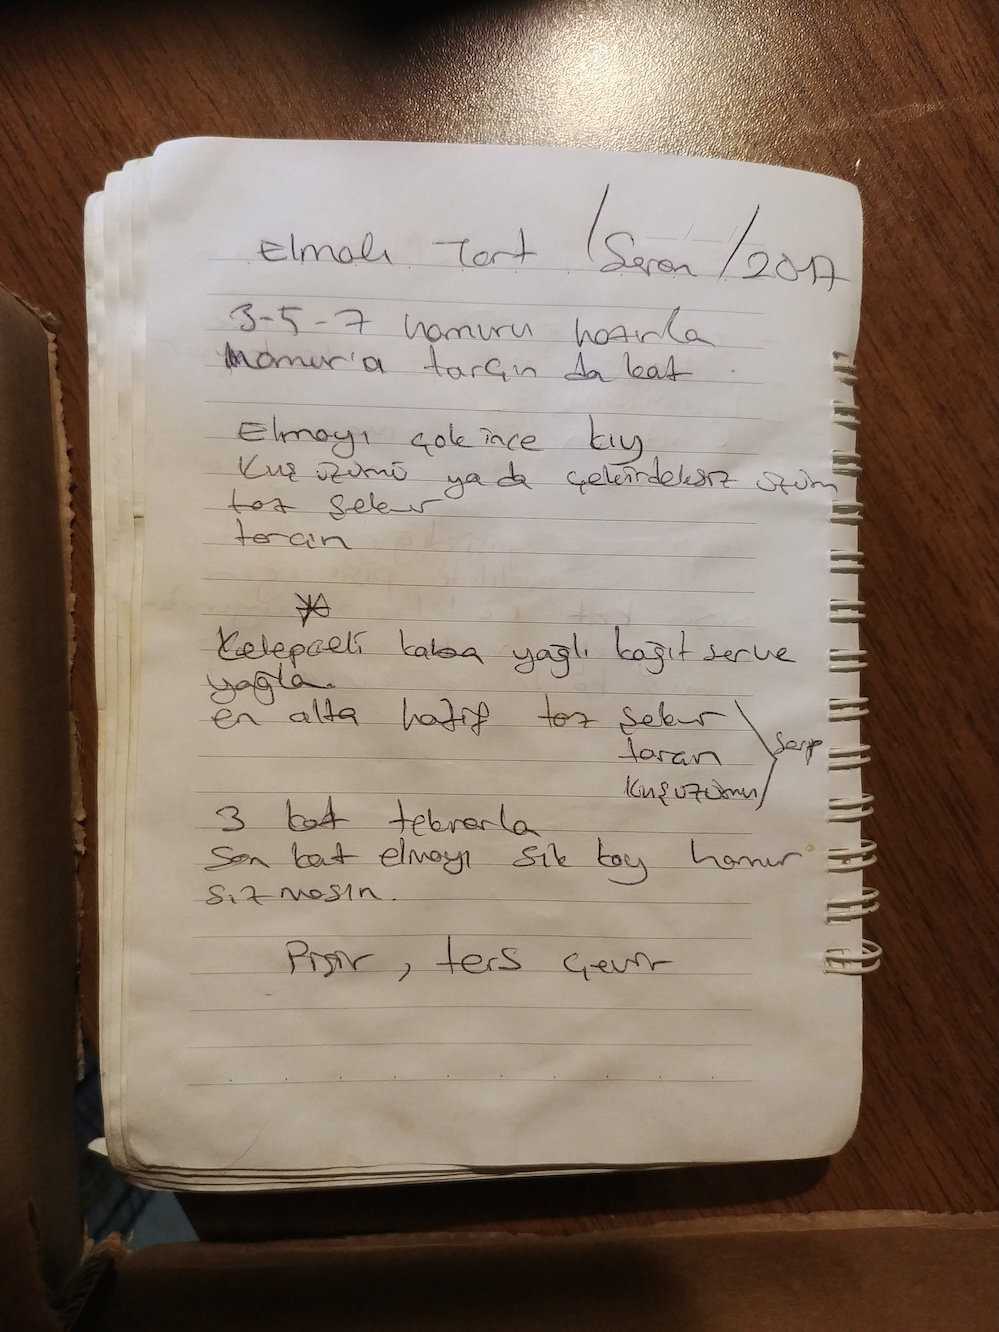 Elmalı Tart / Seren / 2017
3-5-7 hamuru hazırla
Hamur'a tarçın da kat
Elmayı çok ince kıy
Kuş üzümü ya da çekirdeksiz üzüm
toz şeker
tarçın
Kelepçeli kaba yağlı kağıt ser ve
yağla.
en alta hafif toz şeker
tarçın serp
kuşüzümü
3 kat tekrarla
Son kat elmayı sık koy hamur
sızmasın.
Pişir, ters çevir